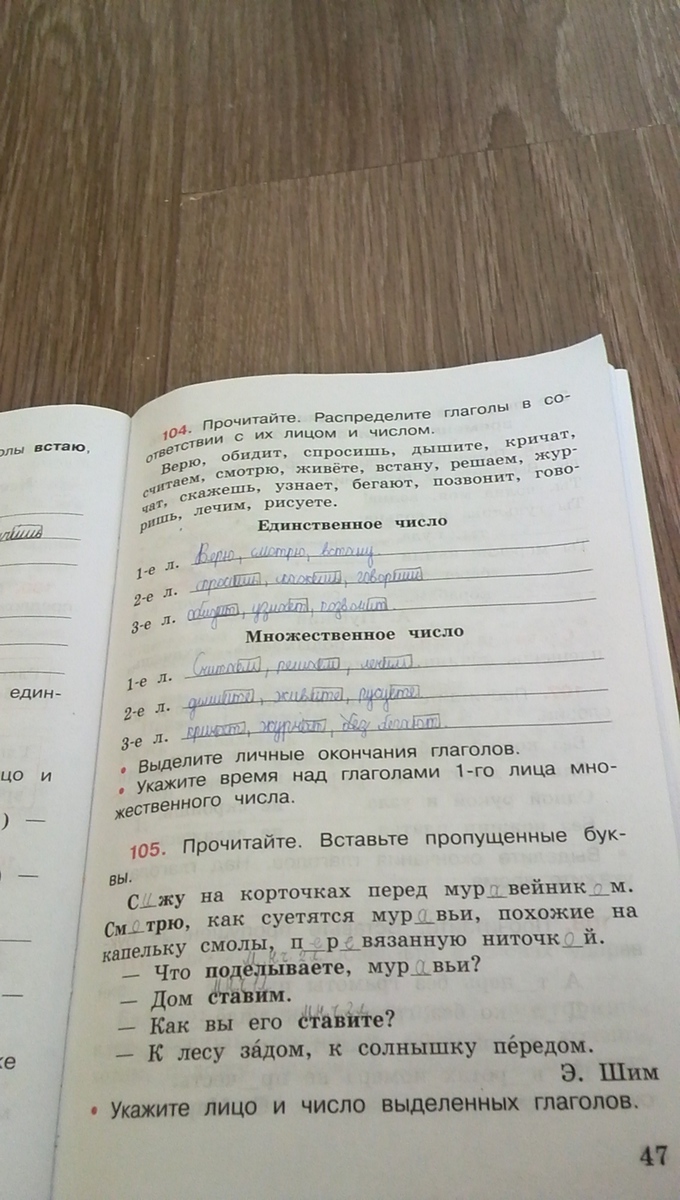 олы встаю,
един-
цо и
) —
—
—
же
104. Прочитайте. Распределите глаголы в со-
ответствии с их лицом и числом.
Верю, обидит, спросишь, дышите, кричат,
считаем, смотрю, живёте, встану, решаем, жур-
чат, скажешь, узнает, бегают, позвонит, гово-
ришь, лечим, рисуете.
Единственное число
1-е л. Верю, смотрю, встану.
2-е л. спросишь, скажешь, говоришь
3-е л. обидит, узнает, позвонит.
Множественное число
1-е л. Считаем, решаем, лечим.
2-е л. дышите, живёте, рисуете
3-е л. кричат, журчат, бегают.
• Выделите личные окончания глаголов.
• Укажите время над глаголами 1-го лица мно-
жественного числа.
105. Прочитайте. Вставьте пропущенные бук-
вы.
Сижу на корточках перед муравейником.
Смотрю, как суетятся муравьи, похожие на
капельку смолы, перевязанную ниточкой.
— Что поделываете, муравьи?
— Дом ставим.
— Как вы его ставите?
— К лесу за́дом, к солнышку пе́редом.
Э. Шим
• Укажите лицо и число выделенных глаголов.
47